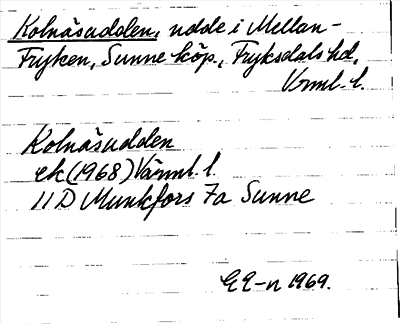 Kolnäsudden, udde i Mellan-
Fryken, Sunne köp., Fryksdals hd,
Vrml. l.
Kolnäsudden
ek (1968) Värml. l.
11 D Munkfors 7a Sunne
1969.